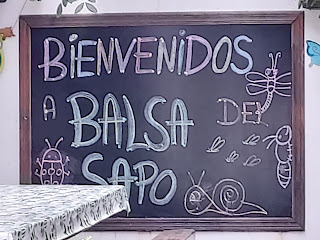 BIENVENIDOS
A BALSA DEL
SAPO